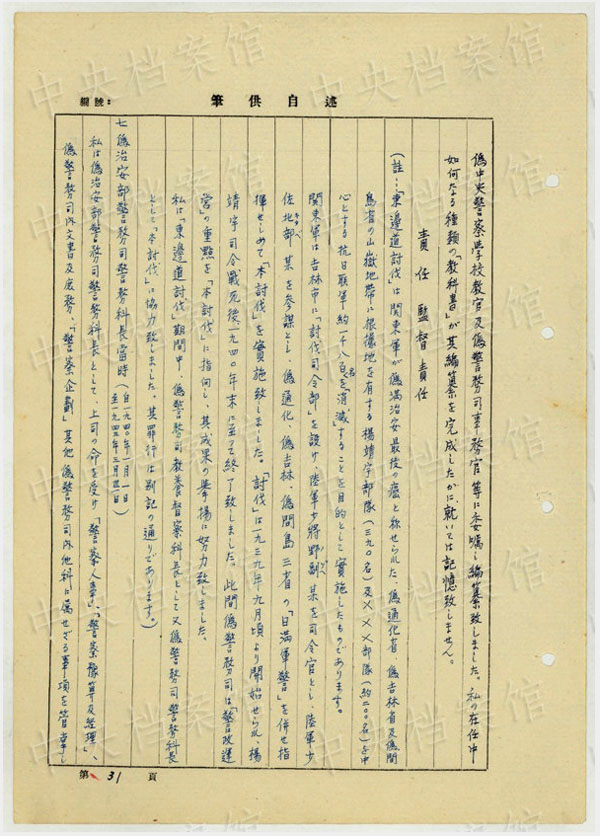 編號:
筆供自述
偽中央警察学校教官及偽警務司事務官等に委嘱し編纂致しました。私の在任中
如何なる種類の「教科書」が其編纂を完成したかに就いては記憶致しません。
責任 監督責任
(註:「東邊道討伐」は関東軍が偽満治安最後の癌と称せられた、偽通化省、偽吉林省及偽間
島省の山嶽地帯に根據地を有する楊靖宇部隊(三九〇名)及×××部隊(約二〇〇名)を中
心とする抗日聯軍約一千八百名を「消滅」することを目的として實施したものであります。
関東軍は吉林市に「討伐司令部」を設け、陸軍少将野副某を司令官とし、陸軍少
佐北部某を参謀とし、偽通化、偽吉林、偽間島三省の「日満軍警」を併せ指
揮せしめて「本討伐」を實施致しました。「討伐」は一九三九年九月頃より開始せられ、楊
靖宇司令戰死後、一九四〇年末に至て終了致しました。此間偽警務司は「警政運
営」の重點を「本討伐」に指向し、其成果の挙揚に努力致しました。
私は「東邊道討伐」期間中、偽警務司教養督察科長として又偽警務司警務科長
として「本討伐」に協力致しました。其罪行は別記の通りであります。)
七 偽治安部警務司警務科長當時(自一九四〇年一月一日 至一九四二年三月廿一日)
私は偽治安部警務司警務科長として、上司の命を受け「警察人事」、「警察豫算及経理」、
偽警務司内文書及庶務、「警察企劃」其他偽警務司内他科に属せざる事項を管掌し
第 31 頁
中央档案馆